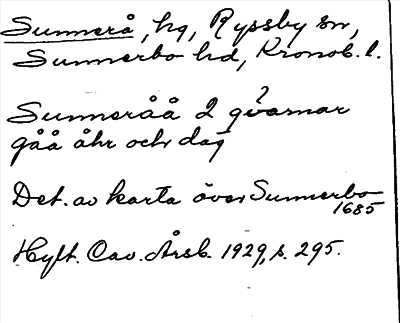 Sunnerå, hg, Ryssby sn,
Sunnerbo hd, Kronob. l.
Sunneråå 2 qvarnar
gåå åhr och dag
Det. av karta över Sunnerbo
1685
Hylt. Cav. Årsb. 1929, s. 295.